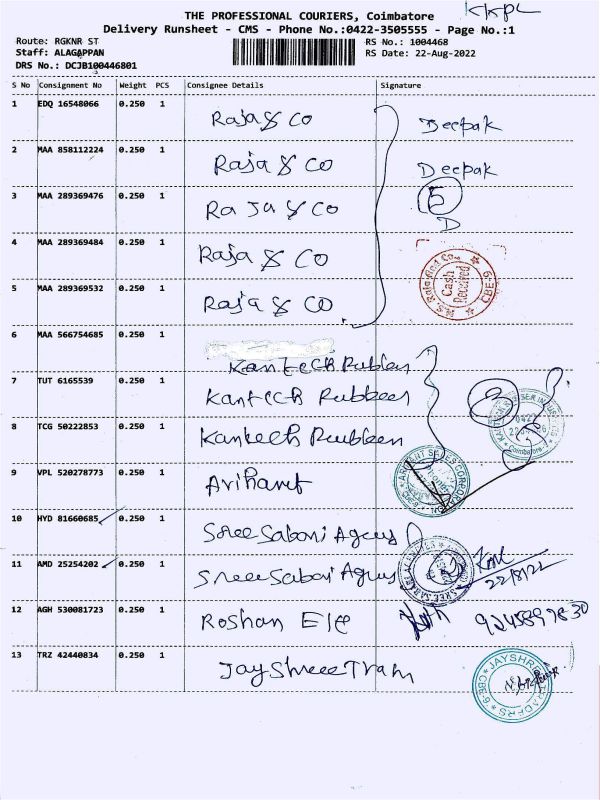 THE PROFESSIONAL COURIERS, Coimbatore
KKPL
Delivery Runsheet - CMS - Phone No.:0422-3505555 - Page No.:1
Route: RGKNR ST
RS No.: 1004468
Staff: ALAGAPPAN
RS Date: 22-Aug-2022
DRS No.: DCJB100446801
S No Consignment No Weight PCS Consignee Details Signature
1 EDQ 16548066 0.250 1 Raja & Co Deepak
2 MAA 858112224 0.250 1 Raja & Co Deepak
3 MAA 289369476 0.250 1 Raja & Co 5
D
4 MAA 289369484 0.250 1 Raja & Co
Cash Received
CBE-9
5 MAA 289369532 0.250 1 Raja & Co
6 MAA 566754685 0.250 1 Kantech Rubber
7 TUT 6165539 0.250 1 Kantech Rubber 3
8 TCG 50222853 0.250 1 Kantech Rubber
Coimbatore
9 VPL 520278773 0.250 1 Arihant
ARIHANT SALES CORPORATION
10 HYD 81660685 0.250 1 Sree Sabari Agency
11 AMD 25254202 0.250 1 Sree Sabari Agency 2
22/8/22
12 AGH 530081723 0.250 1 Roshan Ele
13 TRZ 42440834 0.250 1 Jay Shree Tram
JAYSHREE TRADERS